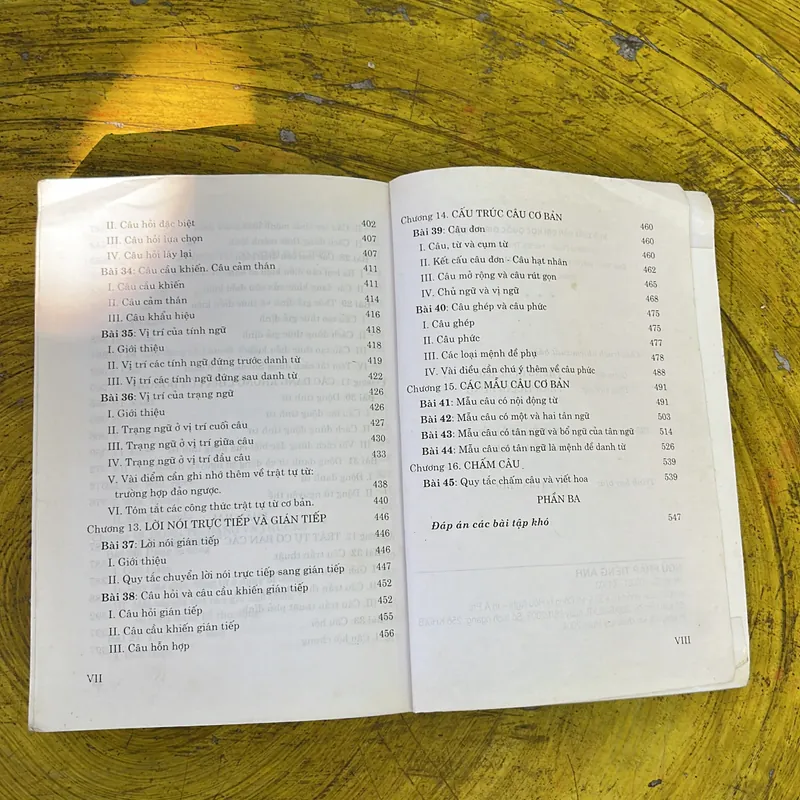 II. Câu hỏi đặc biệt 402
III. Câu hỏi lựa chọn 407
IV. Câu hỏi láy lại 407
Bài 34: Câu cầu khiến. Câu cảm thán 411
I. Câu cầu khiến 411
II. Câu cảm thán 414
III. Câu khẩu hiệu 416
Bài 35: Vị trí của tính ngữ 418
I. Giới thiệu 418
II. Vị trí các tính ngữ đứng trước danh từ 419
III. Vị trí các tính ngữ đứng sau danh từ 422
Bài 36: Vị trí của trạng ngữ 426
I. Giới thiệu 426
II. Trạng ngữ ở vị trí cuối câu 427
III. Trạng ngữ ở vị trí giữa câu 430
IV. Trạng ngữ ở vị trí đầu câu 433
V. Vài điểm cần ghi nhớ thêm về trật tự từ:
trường hợp đảo ngược. 438
VI. Tóm tắt các công thức trật tự từ cơ bản. 440
Chương 13. LỜI NÓI TRỰC TIẾP VÀ GIÁN TIẾP 446
Bài 37: Lời nói gián tiếp 446
I. Giới thiệu 446
II. Quy tắc chuyển lời nói trực tiếp sang gián tiếp 447
Bài 38: Câu hỏi và câu cầu khiến gián tiếp 452
I. Câu hỏi gián tiếp 452
II. Câu cầu khiến gián tiếp 455
III. Câu hỗn hợp 456
VII
Chương 14. CẤU TRÚC CÂU CƠ BẢN
Bài 39: Câu đơn 460
I. Câu, từ và cụm từ 460
II. Kết cấu câu đơn - Câu hạt nhân 460
III. Câu mở rộng và câu rút gọn 462
IV. Chủ ngữ và vị ngữ 465
Bài 40: Câu ghép và câu phức 468
I. Câu ghép 475
II. Câu phức 475
III. Các loại mệnh đề phụ 477
IV. Vài điều cần chú ý thêm về câu phức 478
Chương 15. CÁC MẪU CÂU CƠ BẢN 488
Bài 41: Mẫu câu có nội động từ 491
Bài 42: Mẫu câu có một và hai tân ngữ 491
Bài 43: Mẫu câu có tân ngữ và bổ ngữ của tân ngữ 503
Bài 44: Mẫu câu có tân ngữ là mệnh đề danh từ 514
Chương 16. CHẤM CÂU 526
Bài 45: Quy tắc chấm câu và viết hoa 539
539
PHẦN BA
Đáp án các bài tập khó 547
VIII